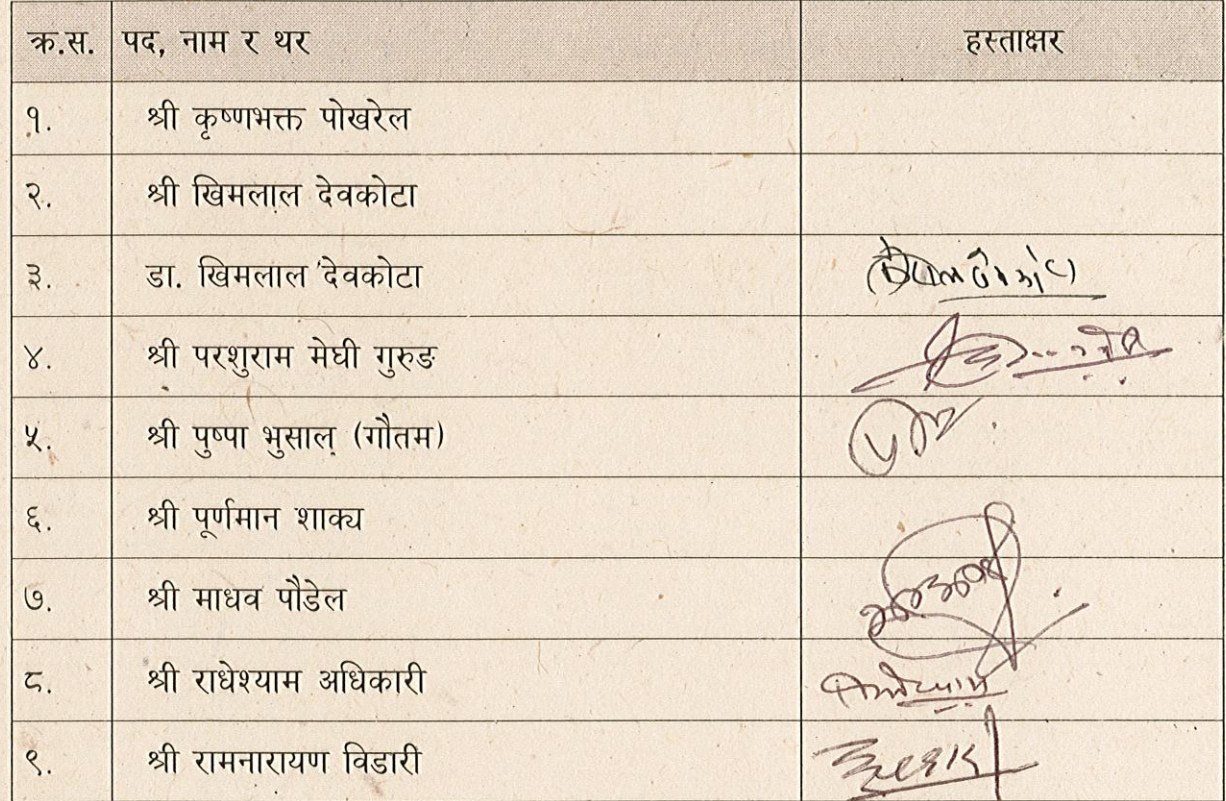 क्र.स. पद, नाम र थर हस्ताक्षर
१. श्री कृष्णभक्त पोखरेल
२. श्री खिमलाल देवकोटा
३. डा. खिमलाल देवकोटा
४. श्री परशुराम मेघी गुरुङ
५. श्री पुष्पा भुसाल (गौतम)
६. श्री पूर्णमान शाक्य
७. श्री माधव पौडेल
८. श्री राधेश्याम अधिकारी
९. श्री रामनारायण विडारी